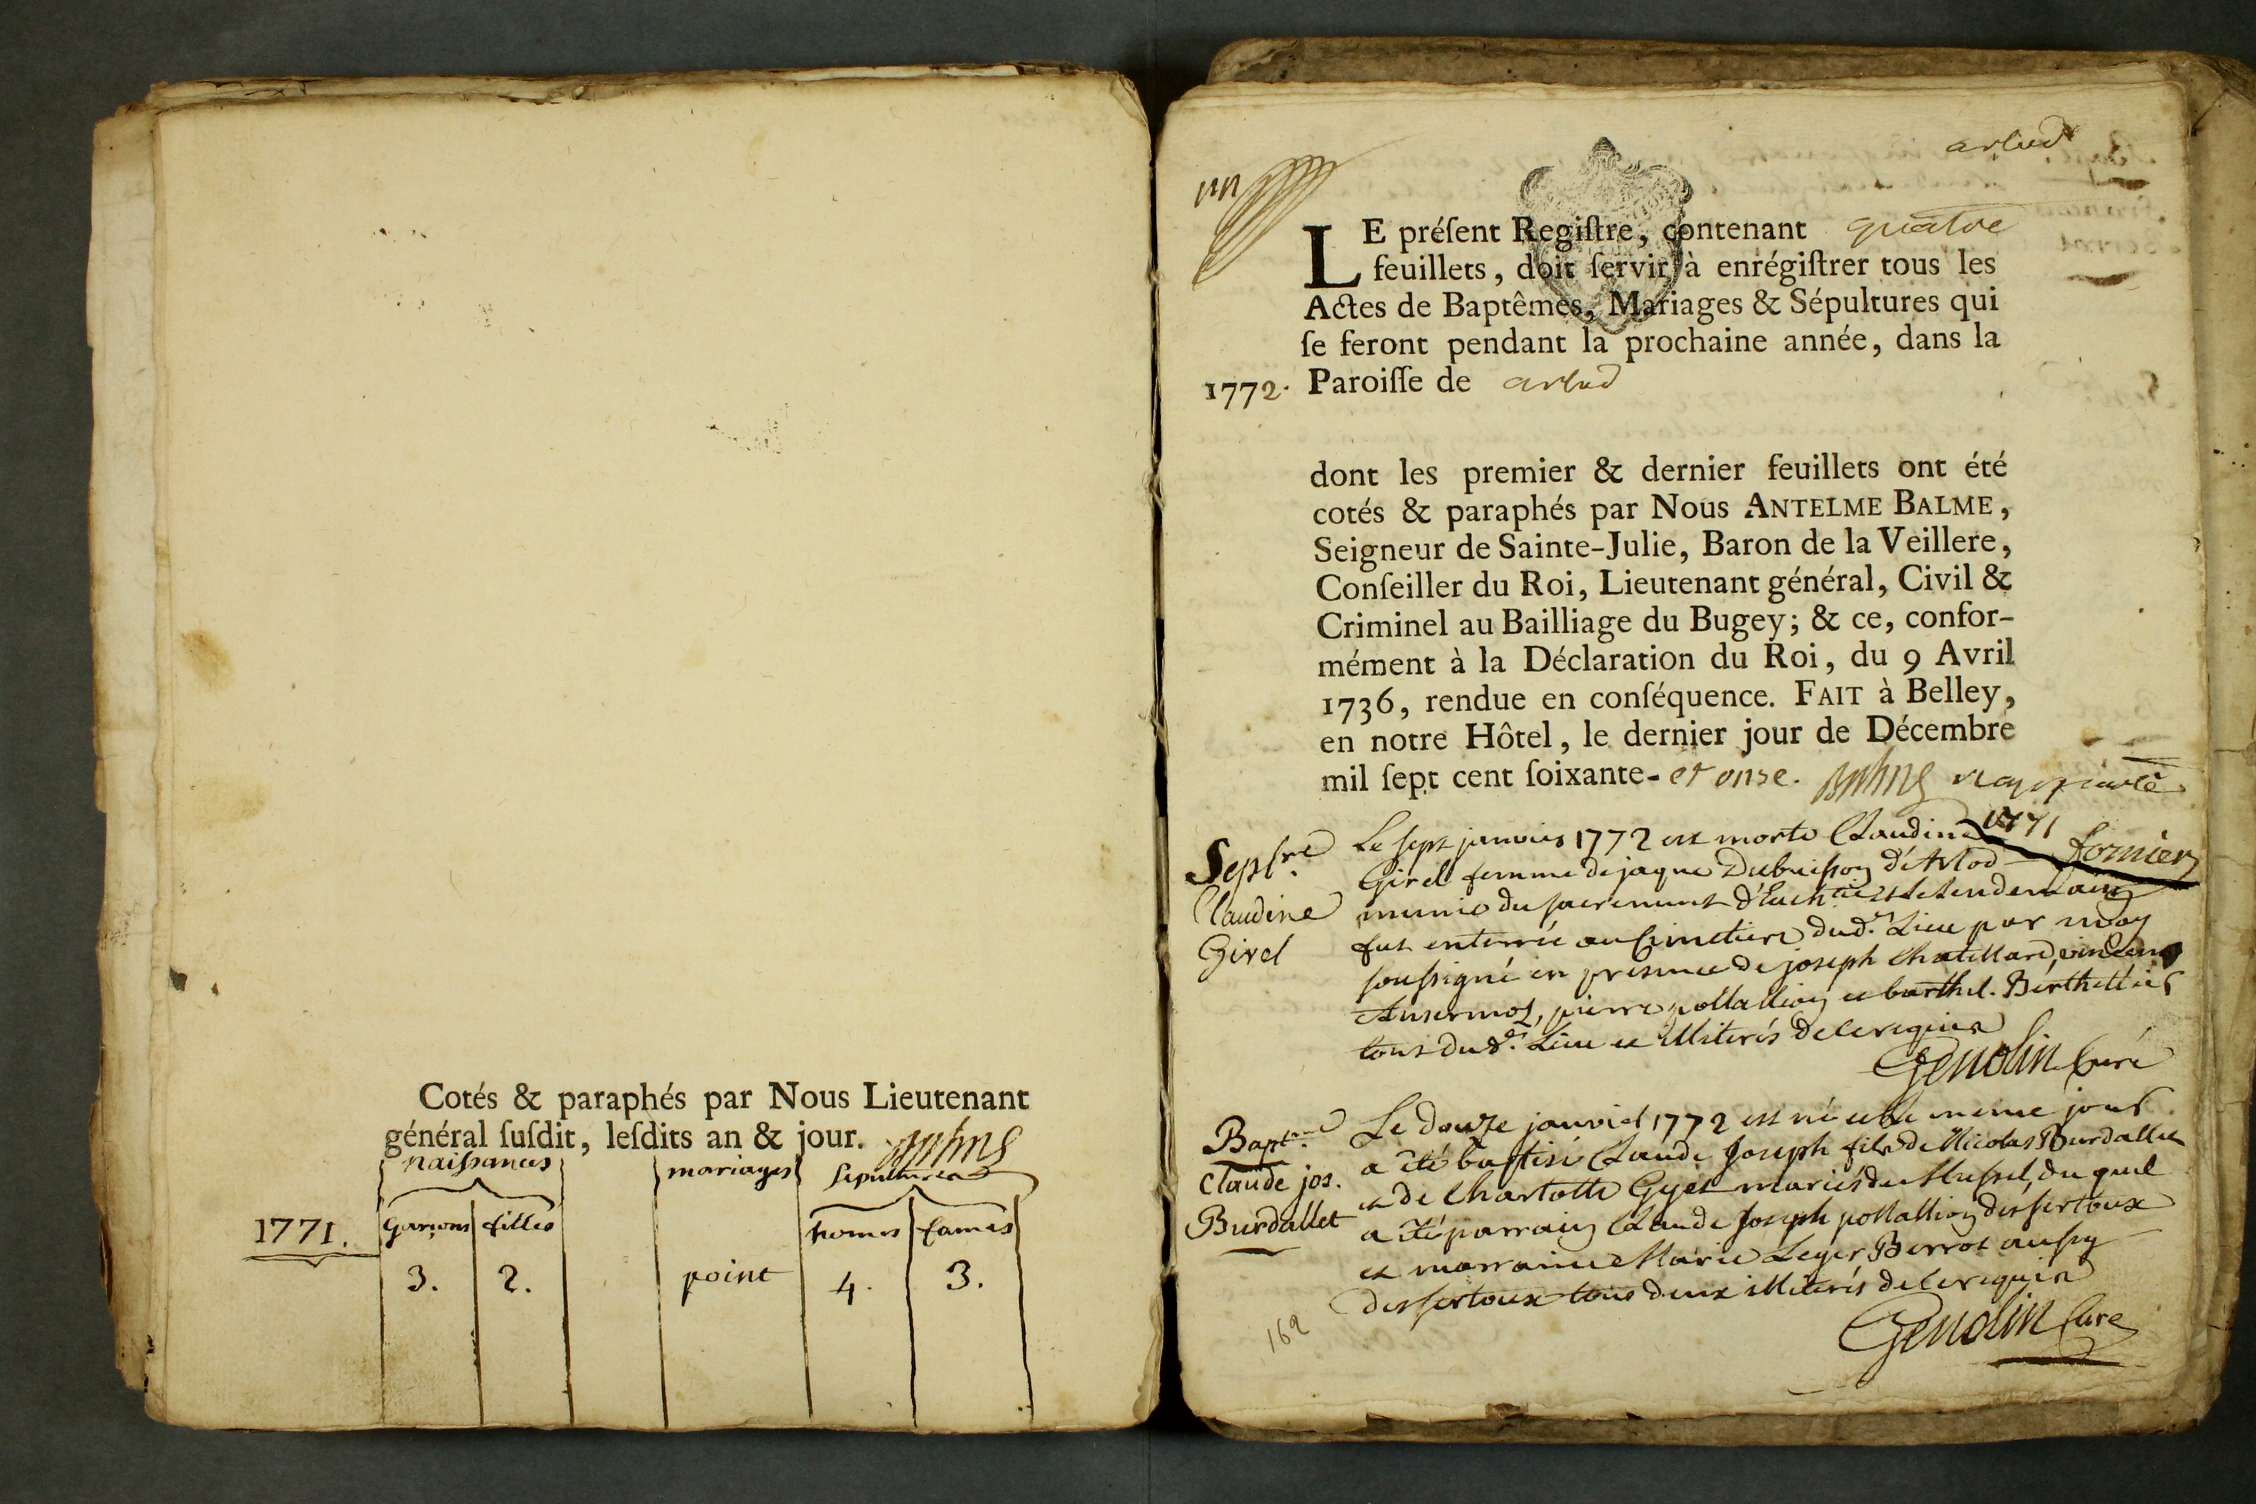 Cotés & paraphés par Nous Lieutenant
général ſuſdit, leſdits an & jour.
naissances mariages sepultures
1771. garçons filles homes fames
3. 2. point 4. 3.
un
arlud
LE préſent Regiſtre, contenant quatre
feuillets, doit ſervir à enrégiſtrer tous les
Actes de Baptêmes, Mariages & Sépultures qui
ſe feront pendant la prochaine année, dans la
1772. Paroiſſe de arlud
dont les premier & dernier feuillets ont été
cotés & paraphés par Nous ANTELME BALME,
Seigneur de Sainte-Julie, Baron de la Veillere,
Conſeiller du Roi, Lieutenant général, Civil &
Criminel au Bailliage du Bugey; & ce, confor-
mément à la Déclaration du Roi, du 9 Avril
1736, rendue en conſéquence. FAIT à Belley,
en notre Hôtel, le dernier jour de Décembre
mil ſept cent ſoixante- et onse.
1771
fornier
Sepltre
Claudine
Girel
Le sept janvier 1772 est morte Claudine
Girel femme de jaque Dubuisson d'Arlod
munie du sacrement d'Euchtie et le lendemain
fut enterrée au Cimetiere dud. Lieu par moy
soussigné en presence de joseph Chatillard, vincent
Ansermoz, pierre pollallion et barthel. Berthelier
tous dud. Lieu et illiterés de ce requis
Genolin Curé
Baptme
Claude jos.
Burdallet
Le douze janvier 1772 est né et le meme jour
a été baptisé Claude Joseph fils de Nicolas Burdallet
et de Charlotte Gyet mariés du Mussel, du quel
a été parrain Claude Joseph pollallion des sertoux
et marraine Marie Leger Berrot aussy
des sertoux tous deux illiterés de ce requis
Genolin Curé
162